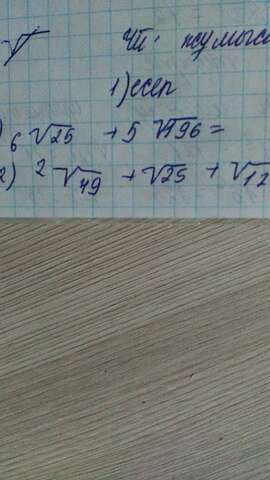 √
Үй жұмыс
1) есеп
) 6 √25 + 5 √196 =
2) 2 √49 + √25 + √12